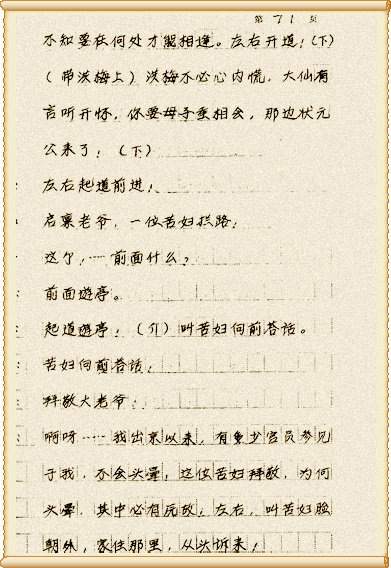 第 71 页
不知要在何处才能相逢。左右开道！（下）
（带洪梅上）洪梅不必心内慌，大仙有
言听开怀，你要母子重相会，那边状元
公来了！（下）
左右起道前进！
启禀老爷，一位苦妇拦路！
这个！……前面什么？
前面遊亭。
起道遊亭！（介）叫苦妇向前答话。
苦妇向前答话！
拜敬大老爷！
啊呀……我出京以来，有多少官员参见
于我，不会头晕，这位苦妇拜敬，为何
头晕，其中必有原故！左右，叫苦妇脸
朝外，家住那里，从头诉来！